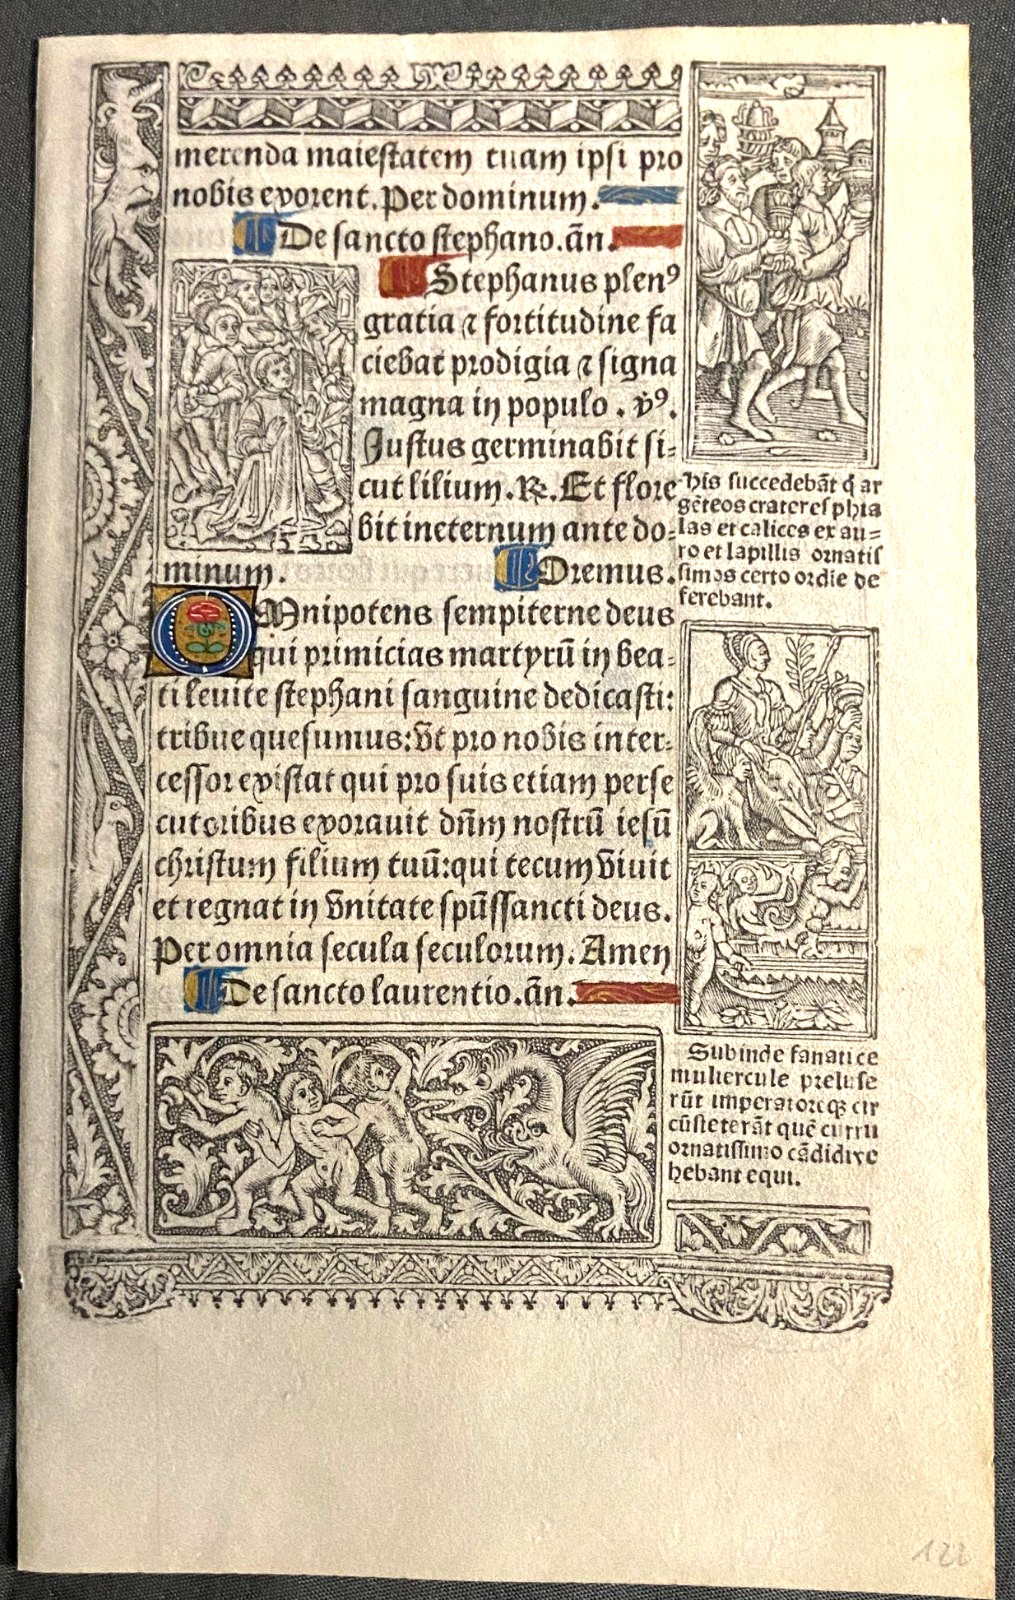 merenda maiestatem tuam ipsi pro
nobis exorent. Per dominum.
¶ De sancto stephano. añ.
¶ Stephanus plenꝰ
gratia ⁊ fortitudine fa
ciebat prodigia ⁊ signa
magna in populo . v̉ꝰ.
Justus germinabit si=
cut lilium. ℟. Et flore
bit ineternum ante do=
minum.
¶ Oremus.
OMnipotens sempiterne deus
qui primicias martyrū in bea=
ti leuite stephani sanguine dedicasti:
tribue quesumus: vt pro nobis inter=
cessor existat qui pro suis etiam perse
cutoribus exorauit dn̄m nostrū iesū
christum filium tuū: qui tecum viuit
et regnat in vnitate spūssancti deus.
Per omnia secula seculorum. Amen
¶ De sancto laurentio. añ.
His succedebāt q̄ ar
gēteos crateres phia
las et calices ex au=
ro et lapillis ornatis
simos certo ordīe de
ferebant.
Subinde fanatice
muliercule preluse
rūt imperatoreqꝫ cir
cūsteterāt quē curru
ornatissimo cādidi ve
hebant equi.
122